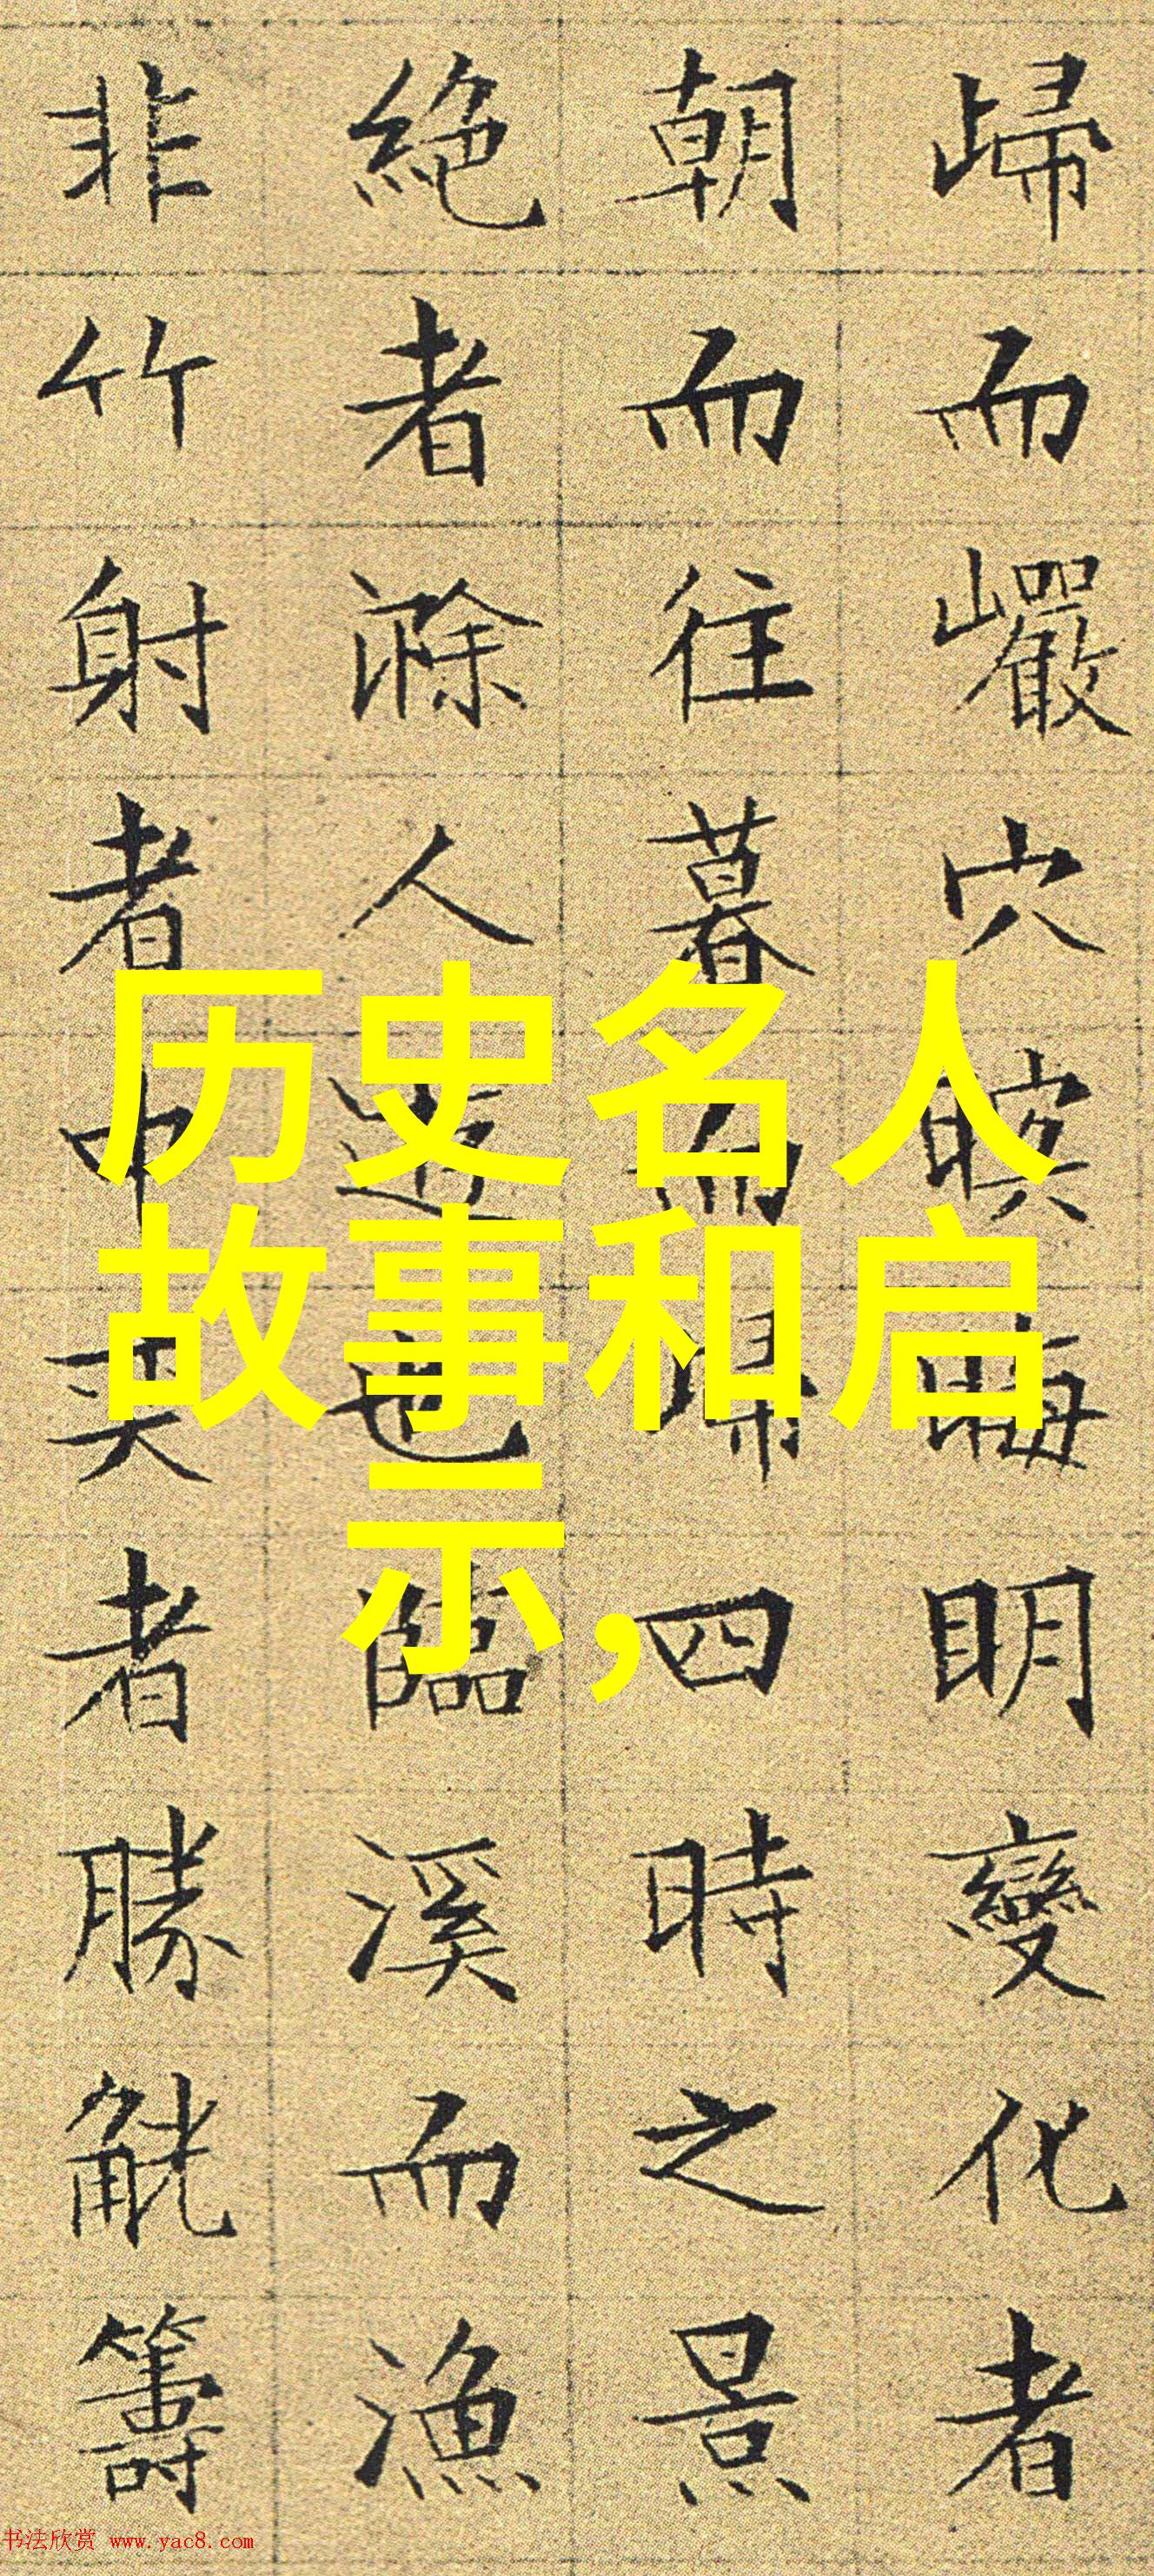 歸而巖穴暝晦明變化者
朝而往暮而歸四時之景
絕者滁人遊也臨溪而漁
非竹射者中奕者勝觥籌
历史名人
故事和启
示，
书法欣赏 www.yac8.com